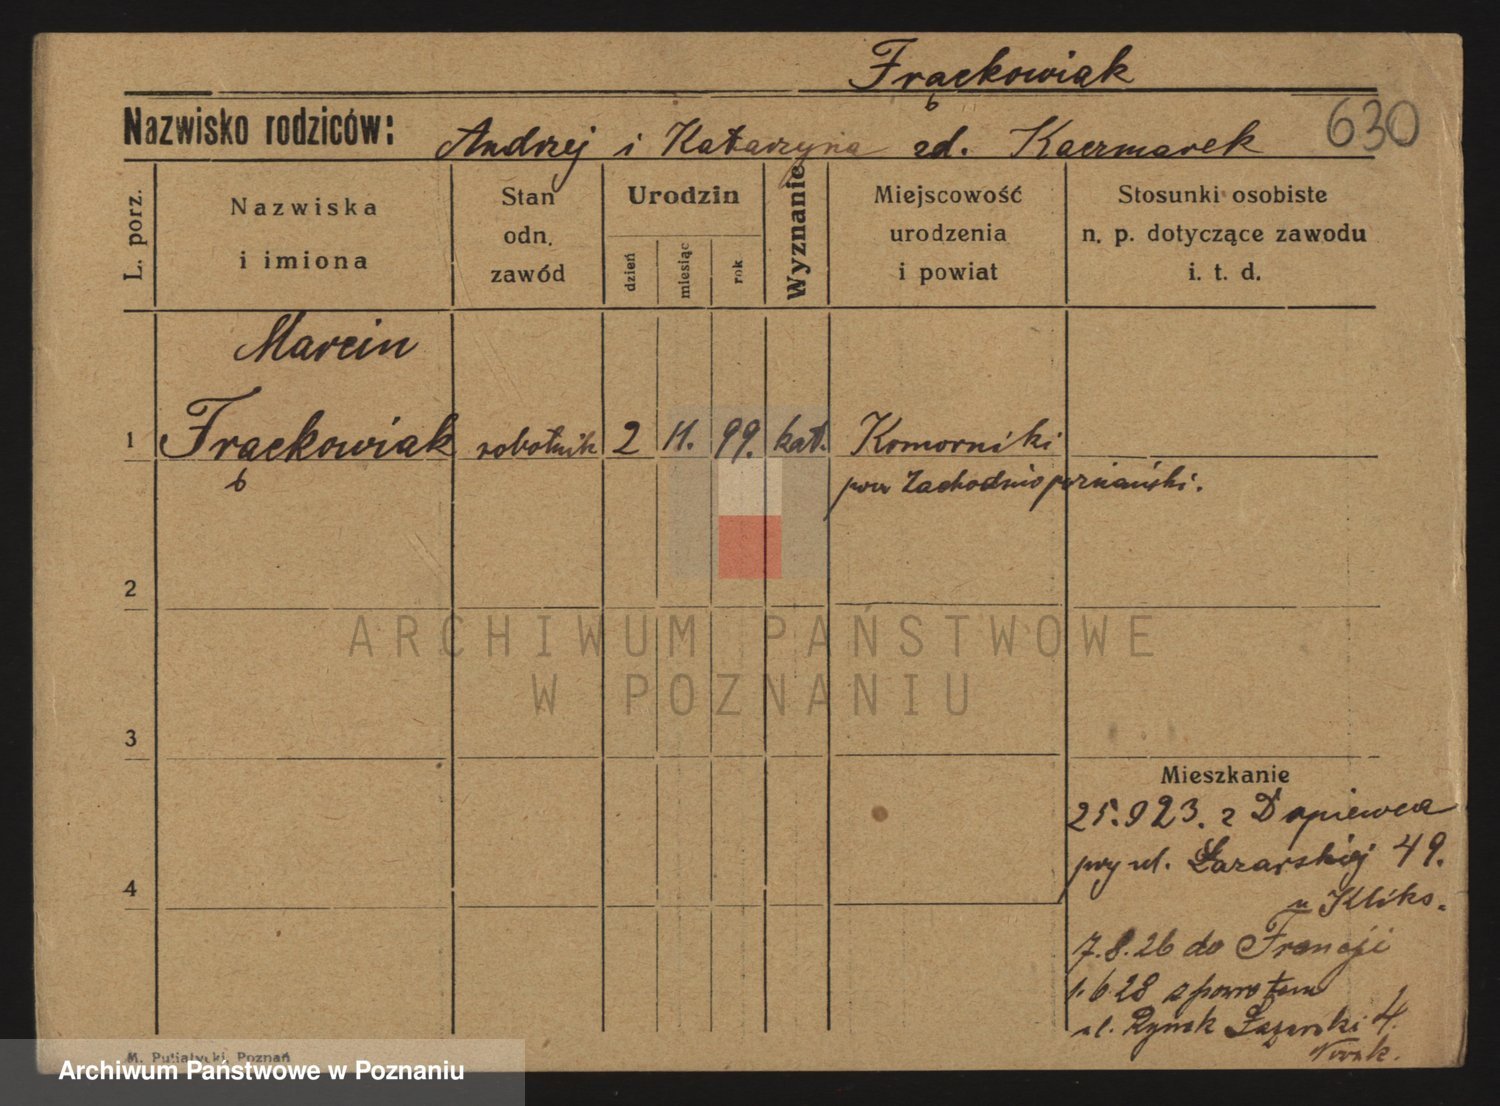 Frąckowiak
630
Nazwisko rodziców: Andrzej i Katarzyna zd. Kaczmarek
L. porz.
Nazwiska i imiona
Stan odn. zawód
Urodzin
dzień
miesiąc
rok
Wyznanie
Miejscowość urodzenia i powiat
Stosunki osobiste n. p. dotyczące zawodu i. t. d.
Marcin
1 Frąckowiak robotnik 2 11. 99. kat. Komorniki
pow Zachodnio poznański.
2
ARCHIWUM PAŃSTWOWE
W POZNANIU
3
Mieszkanie
25.9 23. z Dopiewca
przy ul. Łazarskiej 49.
u Kliks.
4
7.8.26 do Francji
1.6 28 z powrotem
ul. Rynek Łazarski 4.
Nowak.
M. Putiatycki, Poznań
Archiwum Państwowe w Poznaniu